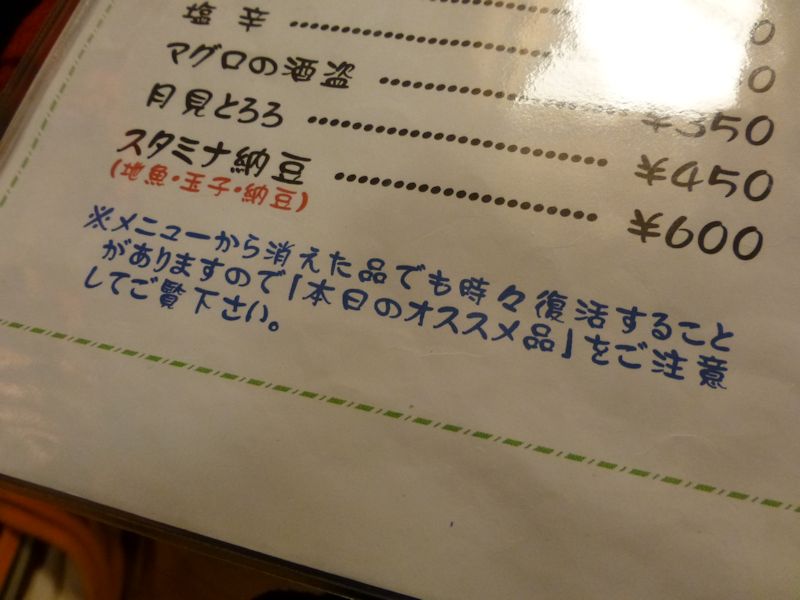 塩辛
マグロの酒盗 ¥350
月見とろろ ¥450
スタミナ納豆 ¥600
(地魚・玉子・納豆)
※メニューから消えた品でも時々復活すること
がありますので「本日のオススメ品」をご注意
してご覧下さい。